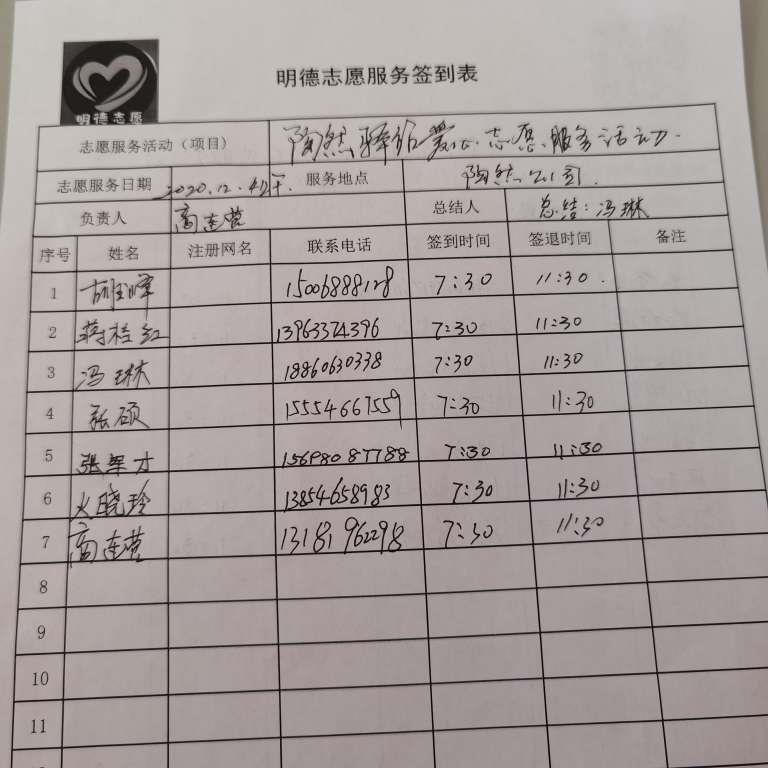 明德志愿服务签到表
明德志愿
志愿服务活动（项目） 陶然驿站爱心志愿服务活动.
志愿服务日期 2020.12. 服务地点 陶然公司.
负责人 高连营 总结人 总结:冯琳
序号 姓名 注册网名 联系电话 签到时间 签退时间 备注
1 15006888128 7:30 11:30.
2 13963374396 7:30 11:30
3 冯琳 18860630338 7:30 11:30
4 张硕 15554667559 7:30 11:30
5 张 才 15698087788 7:30 11:30
6 晓玲 13854658983 7:30 11:30
7 高连营 13181962298 7:30 11:30
8
9
10
11